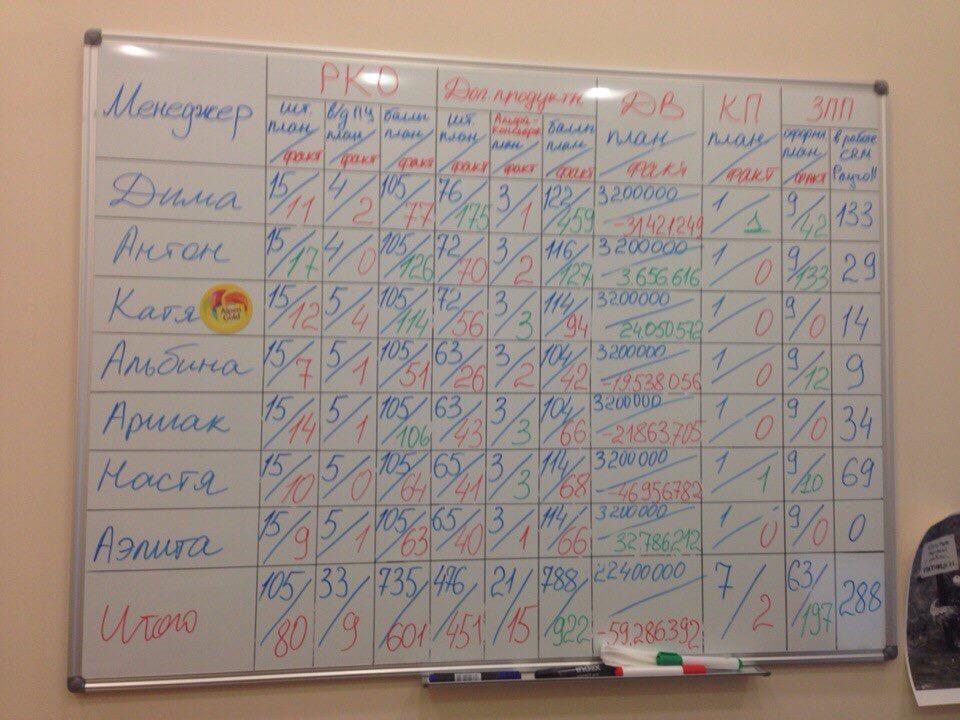 Менеджер РКО Доп. продукты ДВ КП ЗПП
шт. план/факт в/д ПЦ план/факт баллы план/факт шт. план/факт Альфа-консьерж план/факт баллы план/факт план/факт план/факт оформл план/факт в работе CRM
Дима 15/11 4/2 105/77 76/175 3/1 122/459 3200000/-31421249 1/1 9/42 133
Антон 15/17 4/0 105/126 72/70 3/2 116/127 3200000/3.656.616 1/0 9/133 29
Катя Alpen Gold 15/12 5/4 105/114 72/56 3/3 114/94 3200000/24.050.572 1/0 9/0 14
Альбина 15/7 5/1 105/51 63/26 3/2 104/42 3200000/-19538056 1/0 9/12 9
Аршак 15/14 5/1 105/106 63/43 3/3 104/66 3200000/-21863705 1/0 9/0 34
Настя 15/10 5/0 105/64 65/41 3/3 114/68 3200000/-46956782 1/1 9/10 69
Аэлита 15/9 5/1 105/63 65/40 3/1 114/66 3200000/32786212 1/0 9/0 0
Итого 105/80 33/9 735/601 476/451 21/15 788/922 22400000/-59,286,392 7/2 63/197 288